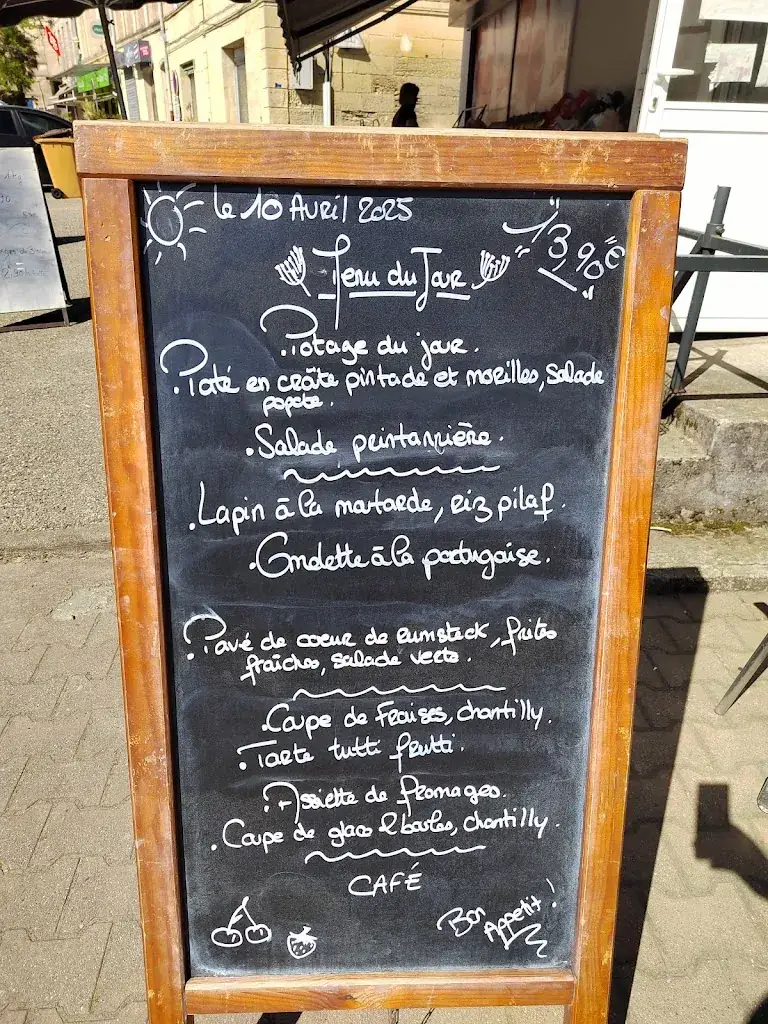 le 10 Avril 2025
13,90€
Menu du Jour
. Potage du jour.
. Paté en croûte pintade et morilles, Salade
popote.
. Salade printannière.
. Lapin à la moutarde, riz pilaf.
. Omelette à la portugaise.
. Pavé de coeur de rumsteck, frites
fraîches, salade verte.
. Coupe de Fraises, chantilly.
. Tarte tutti frutti.
. Assiette de fromages.
. Coupe de glace 2 boules, chantilly.
CAFÉ
Bon Appetit!